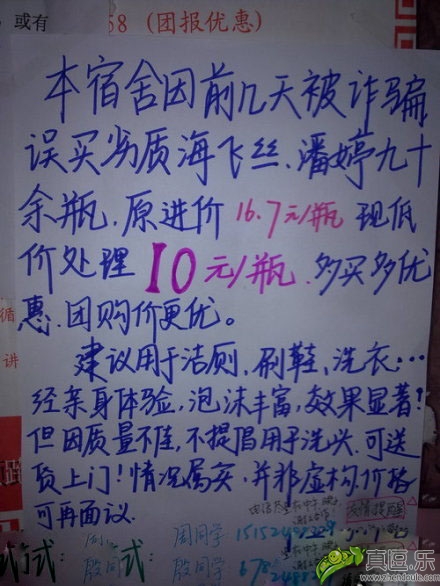 或有
58 (团报优惠)
本宿舍因前几天被诈骗
误买劣质海飞丝、潘婷九十
余瓶，原进价 16.7元/瓶 现低
价处理 10元/瓶，多买多优
惠、团购价更优。
建议用于洁厕、刷鞋、洗衣…
经亲身体验，泡沫丰富，效果显著！
但因质量不佳，不提倡用于洗头，可送
货上门！情况属实，并非虚构，价格
可再面议
循
讲
式：
周同学
殷同学
真逗.乐
www.zhendoule.com